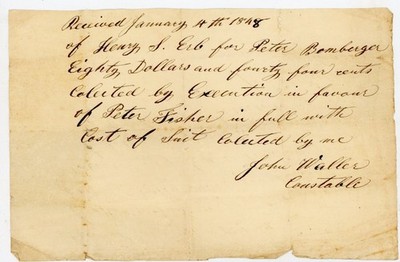 Received January 4th 1848
of Henry S. Erb for Peter Bomberger
Eighty Dollars and fourty four cents
Colected by Execution in favour
of Peter Fisher in full with
Cost of Suit Colected by me
John Weller
Constable